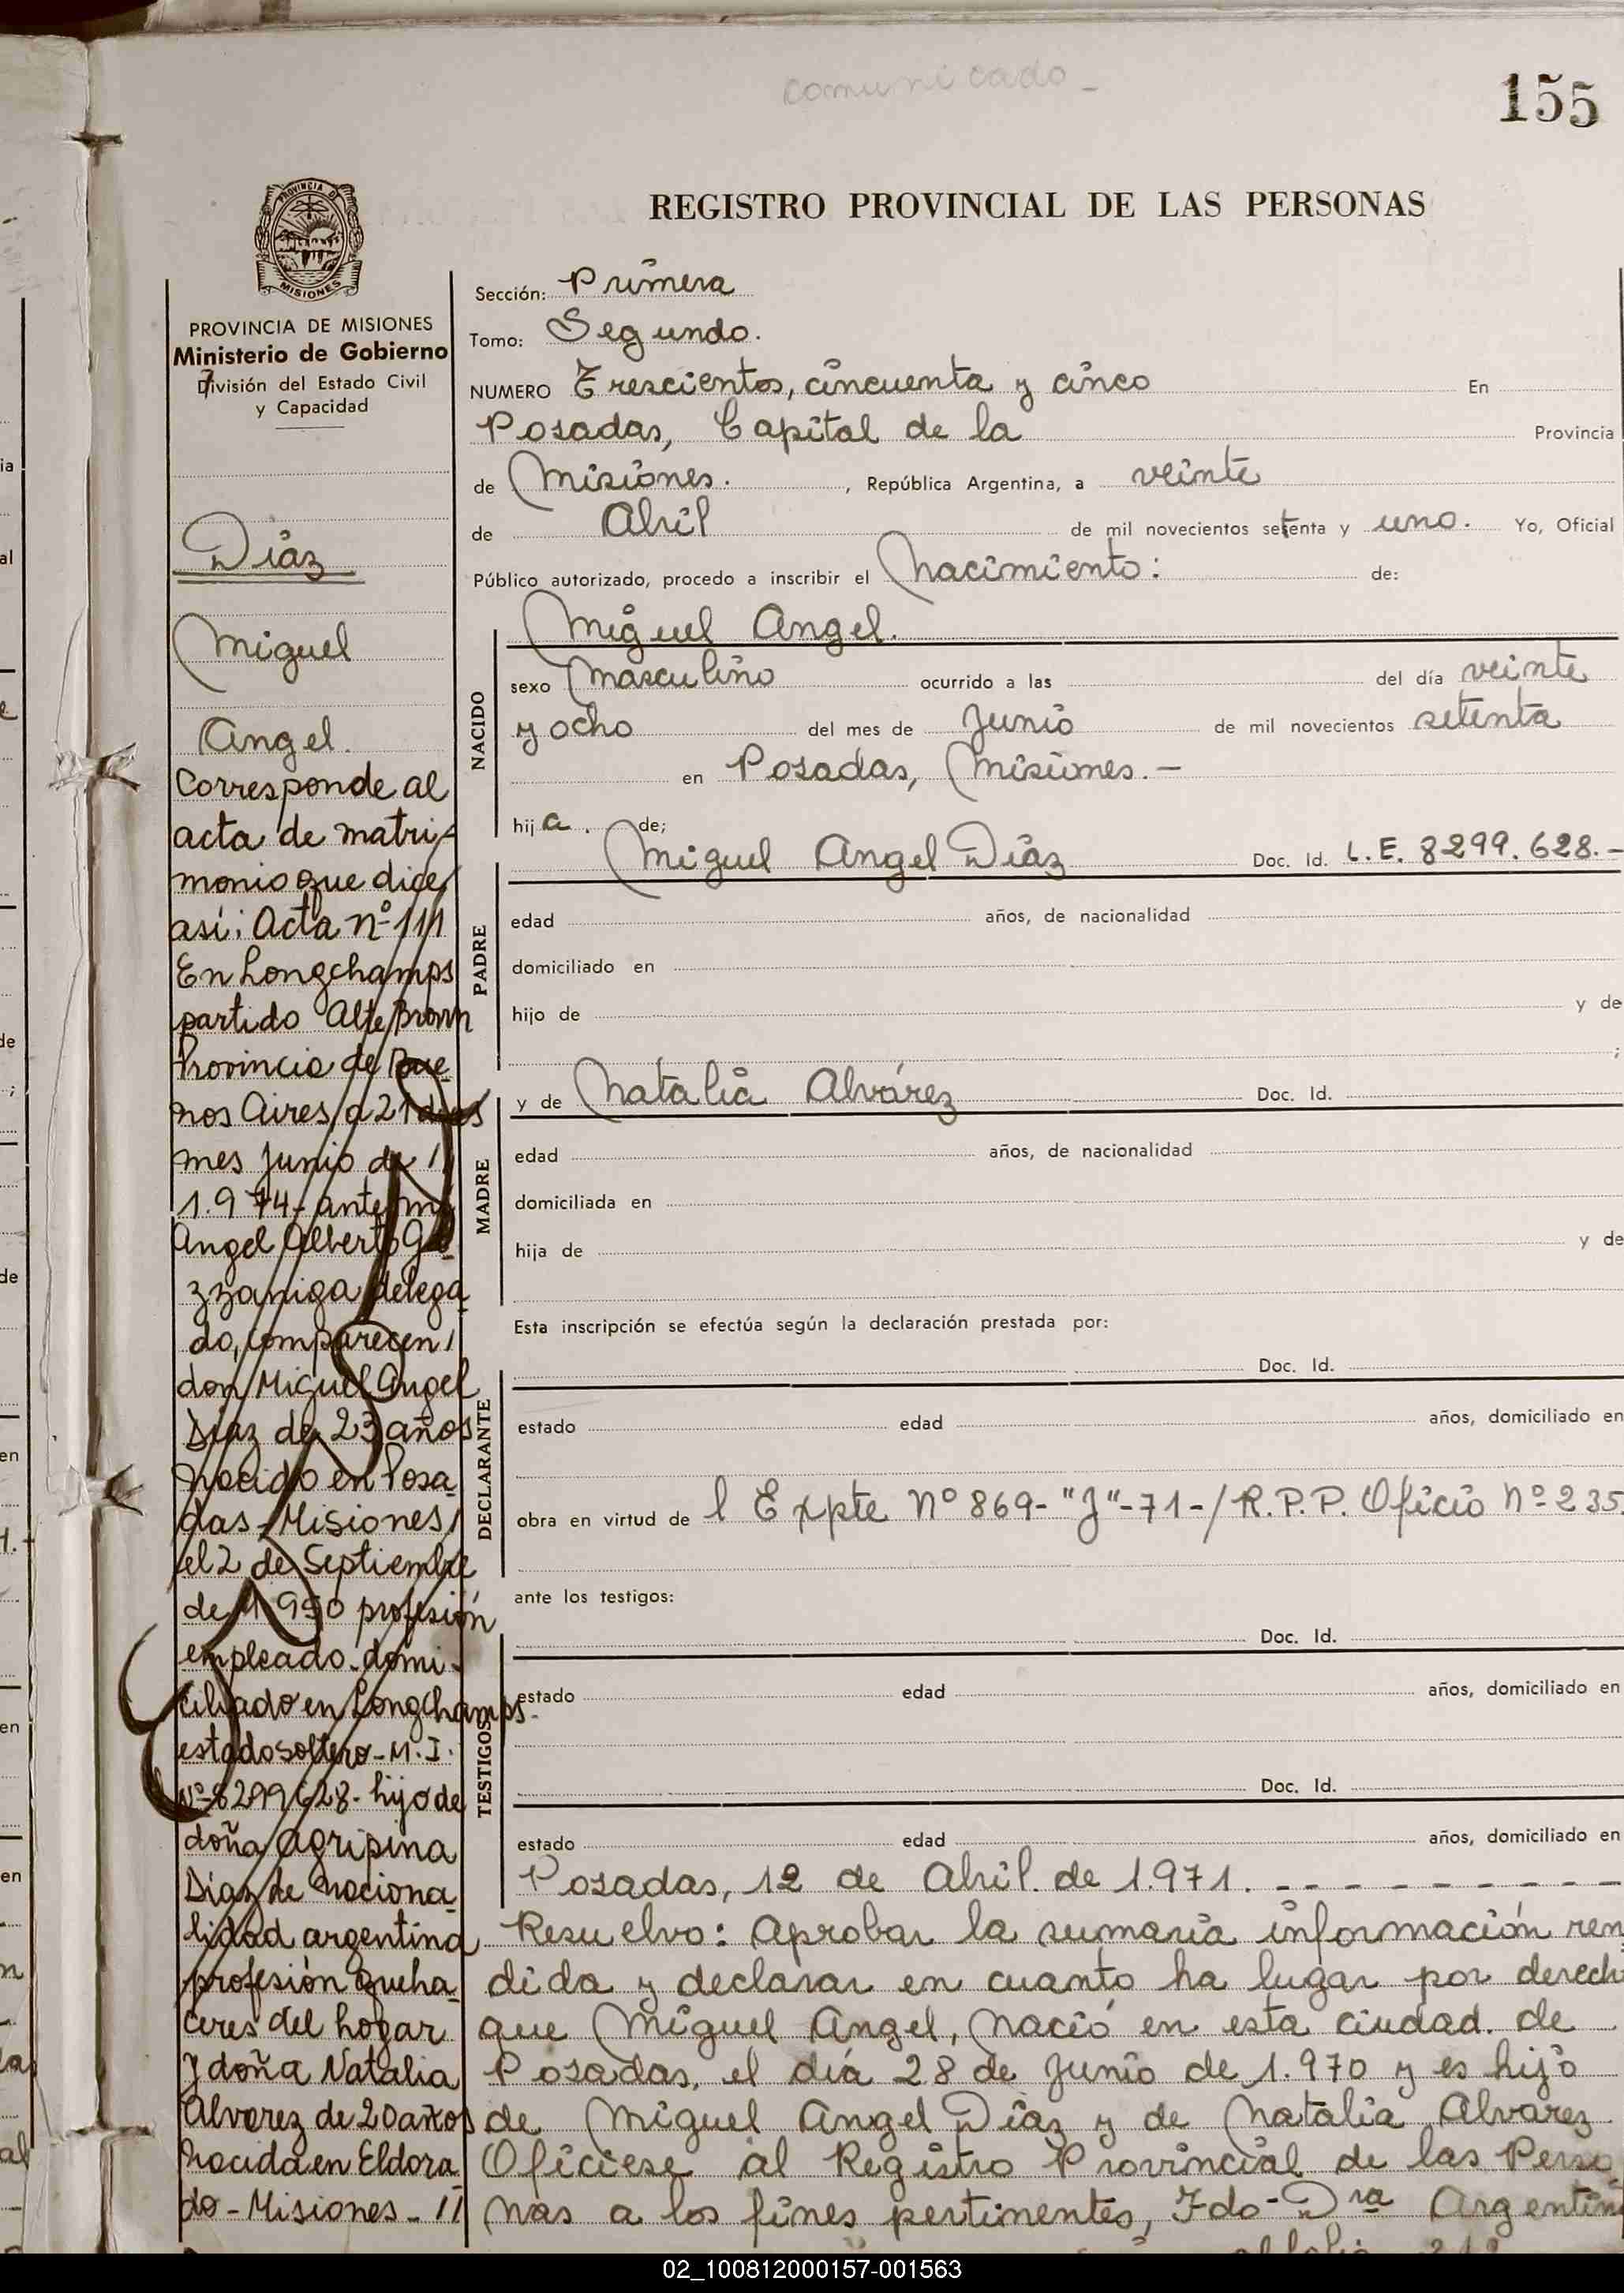 comunicado -
155
REGISTRO PROVINCIAL DE LAS PERSONAS
PROVINCIA DE MISIONES
PROVINCIA DE MISIONES
Ministerio de Gobierno
División del Estado Civil
y Capacidad
Díaz
Miguel
Angel.
Corresponde al
acta de matri-
monio que dice
así: Acta nº 111
En Longchamps
partido Alte Brown
Provincia de Bue-
nos Aires, a 21 dias
mes Junio de
1.974 - ante mi
Angel Alberto Ga-
zzaniga delega-
do, comparecen
don Miguel Angel
Díaz de 23 años
nacido en Posa-
das - Misiones
el 2 de Septiembre
de 1950 profesión
empleado - domi-
ciliado en Longchamps -
estado soltero - M.I.
Nº 8299628 - hijo de
doña Agripina
Díaz de naciona-
lidad argentina
profesión queha-
ceres del hogar
y doña Natalia
Alvarez de 20 años
nacida en Eldora-
do - Misiones - //
Sección: Primera
Tomo: Segundo.
NUMERO Trescientos, cincuenta y cinco En
Posadas, Capital de la Provincia
de Misiones. , República Argentina, a veinte
de Abril de mil novecientos setenta y uno. Yo, Oficial
Público autorizado, procedo a inscribir el Nacimiento: de:
NACIDO
Miguel Angel.
sexo Masculino ocurrido a las del día veinte
y ocho del mes de Junio de mil novecientos setenta
en Posadas, Misiones. -
hij a. de;
PADRE
Miguel Angel Díaz Doc. Id. L.E. 8299.628. -
edad años, de nacionalidad
domiciliado en
hijo de y de
;
MADRE
y de Natalia Alvárez Doc. Id.
edad años, de nacionalidad
domiciliada en
hija de y de
Esta inscripción se efectúa según la declaración prestada por:
DECLARANTE
Doc. Id.
estado edad años, domiciliado en
obra en virtud de l Expte Nº 869-"J"-71-/R.P.P. Oficio Nº 235.
ante los testigos:
TESTIGOS
Doc. Id.
estado edad años, domiciliado en
Doc. Id.
estado edad años, domiciliado en
Posadas, 12 de Abril. de 1.971. - - - - - - - - -
Resuelvo: Aprobar la sumaria información ren
dida y declarar en cuanto ha lugar por derech
que Miguel Angel, Nació en esta ciudad. de
Posadas, el día 28 de Junio de 1.970 y es hijo
de Miguel Angel Díaz y de Natalia Alvarez.
Oficiese al Registro Provincial de las Perso
nas a los fines pertinentes, Fdo - Dra Argentin
02_100812000157-001563